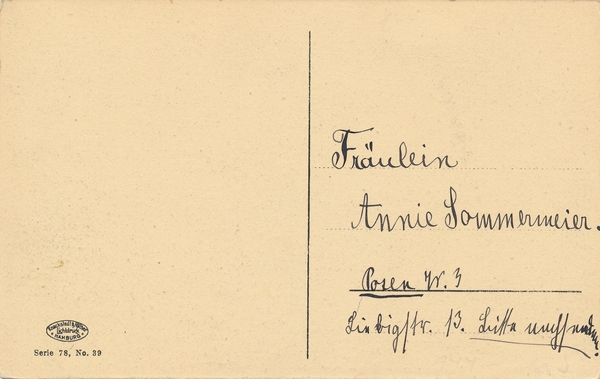 Fräulein
Annie Sommermeier.
Posen W. 3
Liebigstr. 13. Bitte nachsenden!
Knackstedt & Näther
Lichtdruck
HAMBURG
Serie 78, No. 39